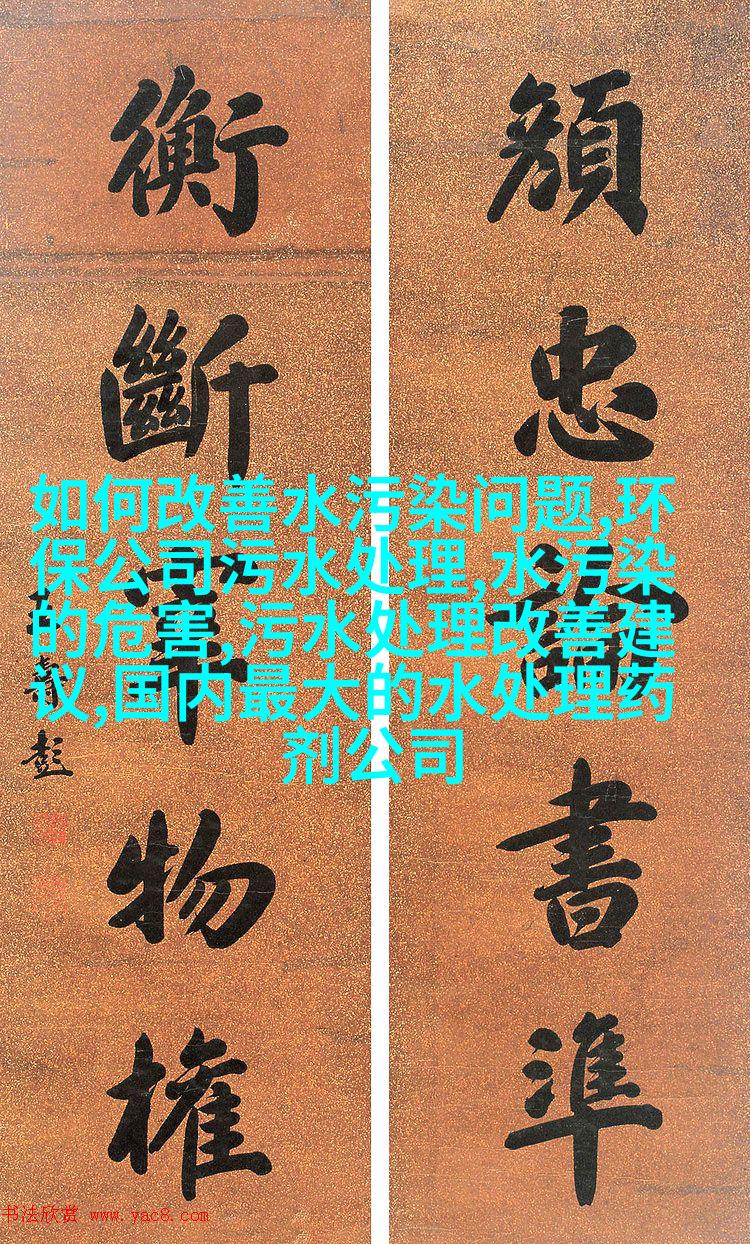 顏忠書準
衡斷物權
壽彭
如何改善水污染问题,环
保公司污水处理,水污染
的危害,污水处理改善建
议,国内最大的水处理药
剂公司
书法欣赏 www.yac8.com